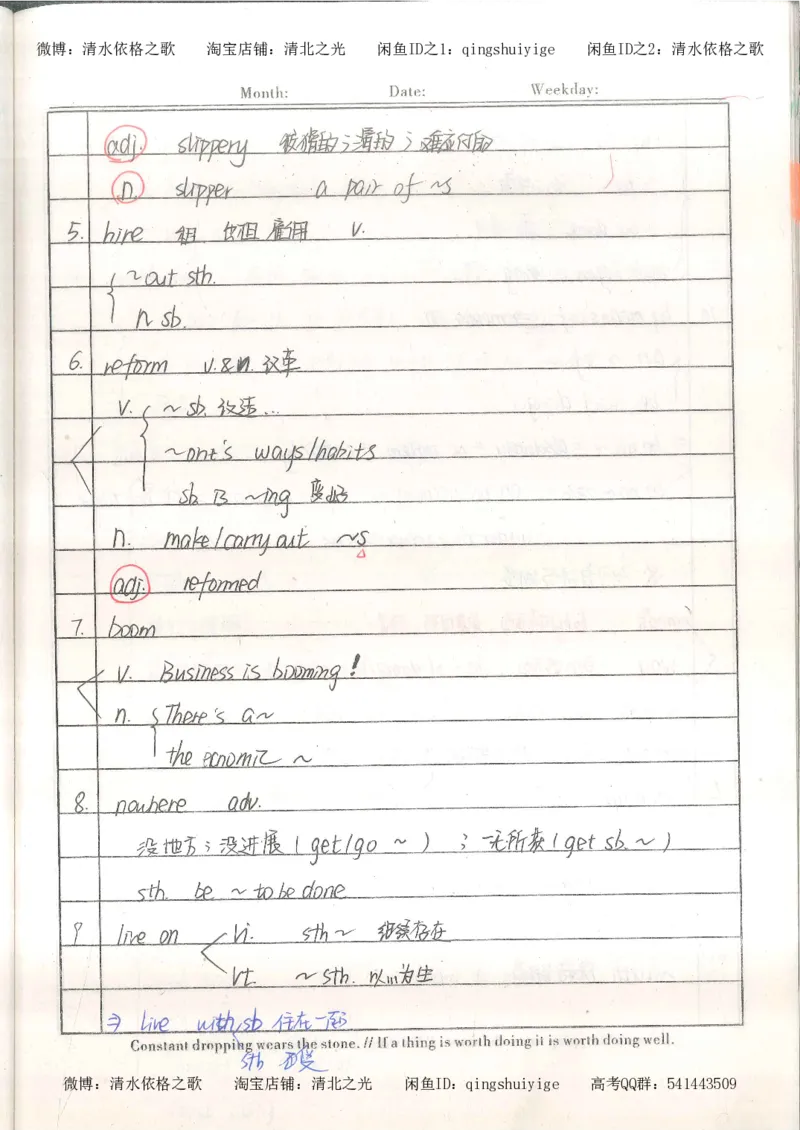 微博：清水依格之歌 淘宝店铺：清北之光 闲鱼ID之1：qingshuiyige 闲鱼ID之2：清水依格之歌
Month: Date: Weekday:
adj. slippery 滑的；难应付的
n. slipper a pair of ~s
5. hire 租 出租 雇佣 v.
~out sth.
~ sb.
6. reform v.&n. 改革
v. ~ sb. 改造...
~one's ways/habits
sb is ~ing 变好
n. make/carry out ~s
adj. reformed
7. boom
v. Business is booming!
n. There's a ~
the ecnomic ~
8. nowhere adv.
没地方；没进展(get/go ~)；一无所获(get sb. ~)
sth. be ~ to be done
9 live on vi. sth ~ 继续存在
vt. ~ sth. 以...为生
⇒ live with sb 住在一起
Constant dropping wears the stone. // If a thing is worth doing it is worth doing well.
sth 忍受
微博：清水依格之歌 淘宝店铺：清北之光 闲鱼ID：qingshuiyige 高考QQ群：541443509